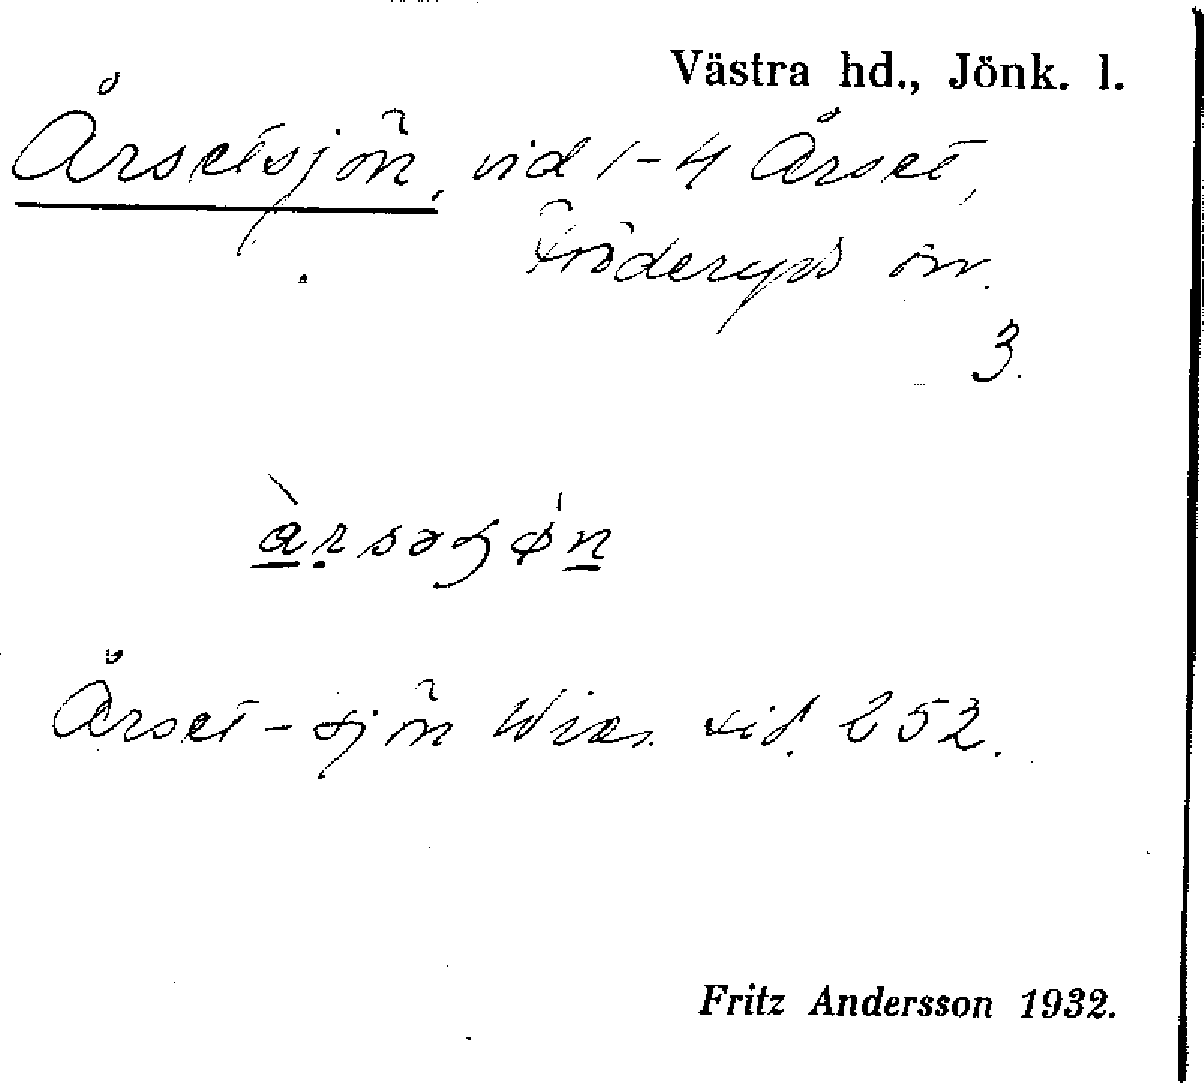 Västra hd., Jönk. l.
Årsetsjön, vid 1-4 Årset,
Fröderyds sn.
3.
àrsəɧøn
Årset-sjön Wies. sid. 252.
Fritz Andersson 1932.